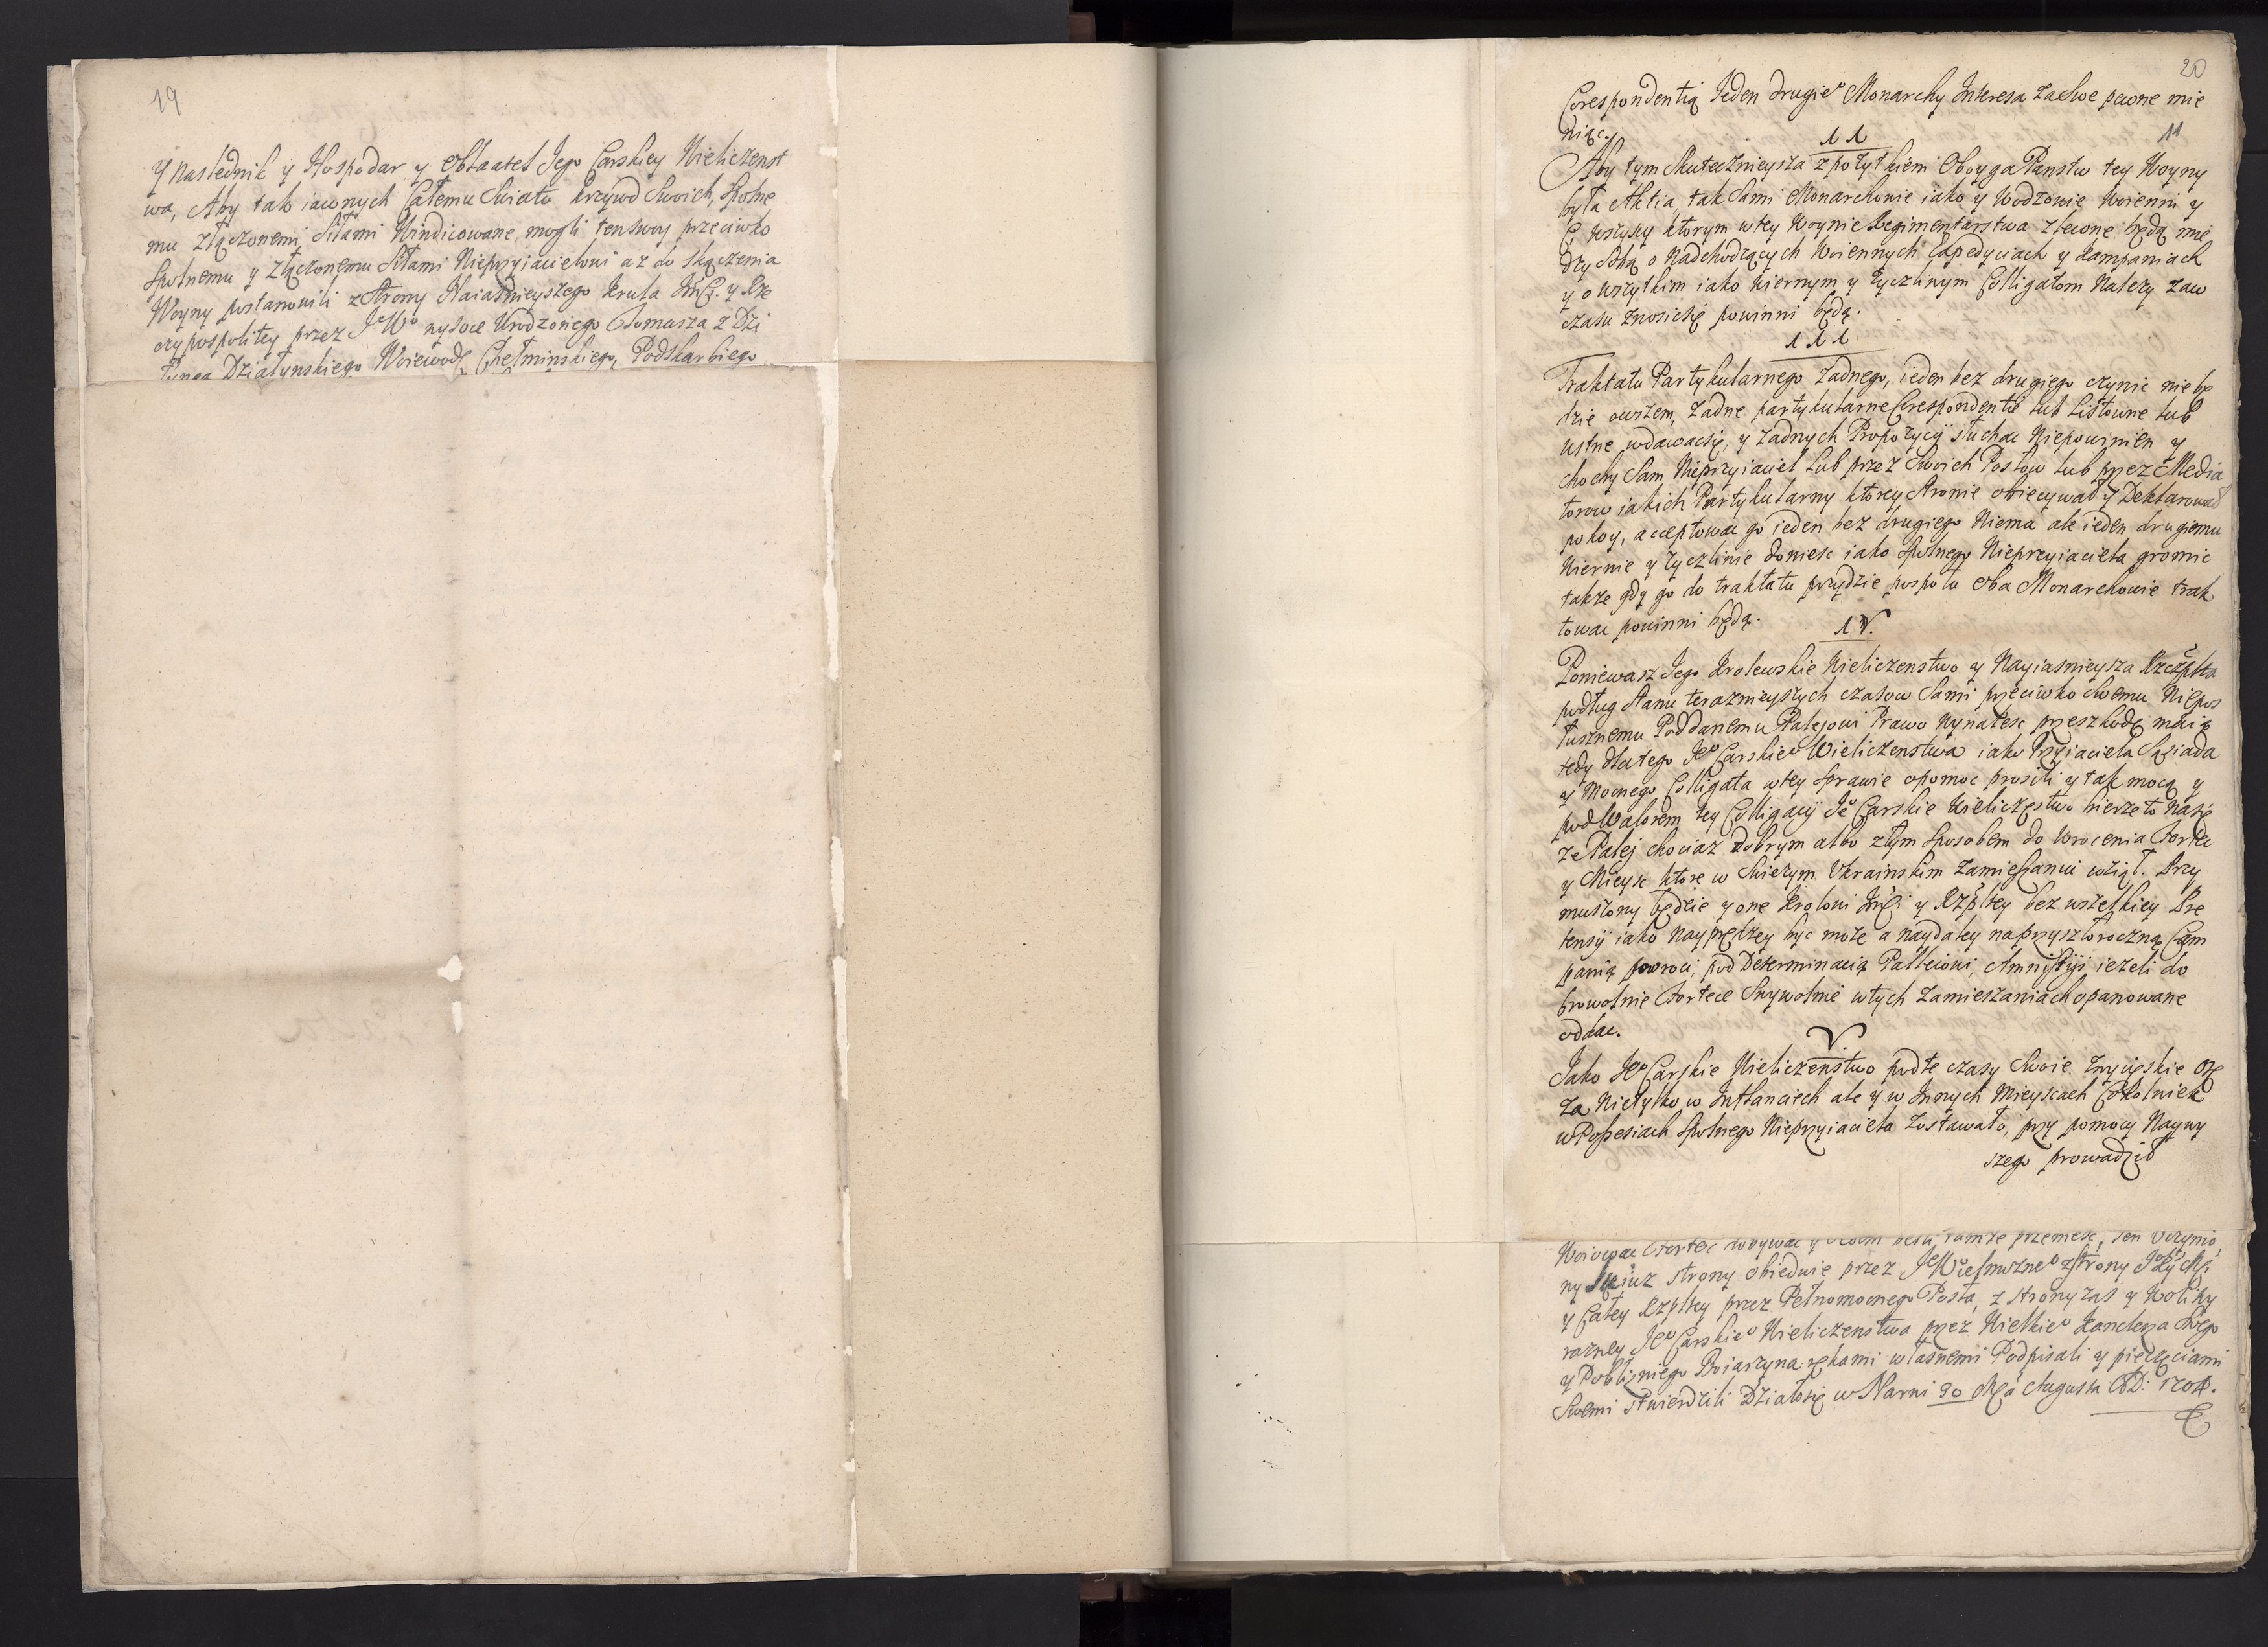 19
Y Naslednik y Hospodar y Obłaatel Jego Carskiey Wieliczenst
wa, Aby tak iawnych Całemu Swiatu krzywd Swoich, Spolne
mu złączonemi Siłami Windicowane mogli tenswoy przeciwko
Spolnemu y Złączonemu Siłami Nieprzyiacielowi aż do skączenia
Woyny postanowili z Strony Naiasnieyszego Krula JmCi. y Rze
czypospolitey przez JeWo wysoce Urodzonego Tomasza z Dzi
łynea Działynskiego Woiewodę Chełminskiego, Podskarbiego
20
Corespondentią Jeden drugieo Monarchy Interesa zachoe pewne mie
niąc.
11
11
Aby tym Skutecznieysza z pożytkiem Oboyga Panstw tey Woyny
była Aktia, tak Sami Monarchowie iako y Wodzowie Woienni y
Ci wszyscy ktorym wtey Woynie Regimentarstwa zlecone będą mie
dzy Sobą o Nadchodzących Woiennych Expedyciach y Kampaniach
y o wszytkim iako wiernym y życzliwym Colligatom Należy zaw
czasu znosicsię powinni będą.
111
Traktatu Partykularnego żadnego, ieden bez drugiego czynic niebę
dzie owszem, żadne partykularne Corespondentie lub Listowne lub
ustne wdawacsię, y żadnych Propozycyi słuchac Niepowinien y
chocby Sam Nieprzyiaciel Lub przez Swoich Posłow lub przez Media
torow iakich Partykularny ktorey stronie obiecywał y Deklarował
pokoy, acceptowac go ieden bez drugiego Niema ale ieden drugiemu
Wiernie y życzliwie doniesc iako Spolnego Nieprzyiaciela gromic
także gdy go do traktatu przydzie pospołu Oba Monarchowie trak
towac powinni będą.
1V.
Poniewasz Jego Krolewskie Wieliczenstwo y Nayiasnieysza Rzeczplta
podług stanu teraznieyszych czasow Sami przeciwko Swemu Niepos
łusznemu Poddanemu Palejowi Prawo Wynaleść przeszkodę maią
tedy dlatego Jeo Carskieo Wieliczenstwa iako Przyiaciela Sąsiada
y Mocnego Colligata wtey Sprawie opomoc prosili y tak mocą y
pod Walorem tey Colligacyi Jeo Carskie Wieliczęstwo bierze to Nasię
że Palej chociaz dobrym albo złym Sposobem do wrocenia Fortec
y Mieysc ktore w Swieżym Ukrainskim Zamieszaniu wziął. Przy
muszony będzie y one Krolowi JmCi y Rzpltey bez wszelkiey Pre
tensyi iako Nayprędzey byc może a naydaley naprzyszłoroczną Cam
panią powroci, pod Determinacią Palleiowi Amnistyi ieżeli do
browolnie Fortece Swywolnie wtych Zamieszaniach opanowane
oddac.
V.
Jako Jeo Carskie Wieliczenstwo podte czasy Swoie zwycięskie Orę
za Nietylko w Inflanciech ale y w Innych Mieyscach Cokolwiek
w Possesiach Spolnego Nieprzyiaciela Zostawało, przy pomocy Naywy
szego prowadził
Woiowac Fortec dobywac y tamże przeniesc, ten Uczynio
ny Sięiuz strony obiedwie przez JeWielmożneo z strony JKMci
y Całey Rzpltey przez Pełnomocnego Posła, z strony zas y Woli Nay
razney Jeo Carskieo Wieliczenstwa przez Wielkieo Kanclerza Swego
y Pobliżniego Boiarzyna rękami własnemi Podpisali y pieczęciami
Swemi stwierdzili Działosię w Narwi 30 Mca Augusta AD: 1704.